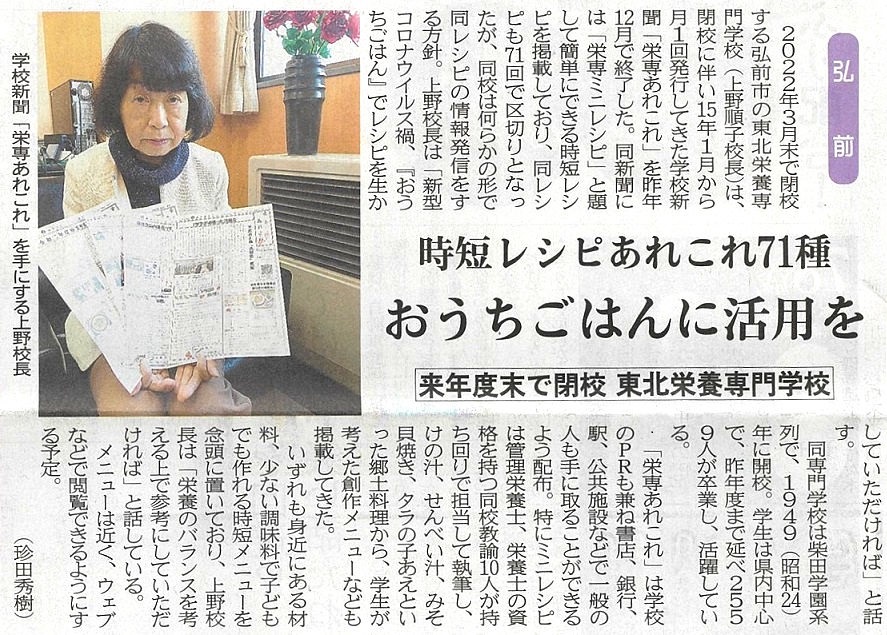 弘前
２０２２年３月末で閉校
する弘前市の東北栄養専
門学校（上野順子校長）は、
閉校に伴い15年１月から
月１回発行してきた学校新
聞「栄専あれこれ」を昨年
12月で終了した。同新聞に
は「栄専ミニレシピ」と題
して簡単にできる時短レシ
ピを掲載しており、同レシ
ピも71回で区切りとなっ
たが、同校は何らかの形で
同レシピの情報発信をす
る方針。上野校長は「新型
コロナウイルス禍、『おう
ちごはん』でレシピを生か
学校新聞「栄専あれこれ」を手にする上野校長
時短レシピあれこれ71種
おうちごはんに活用を
来年度末で閉校 東北栄養専門学校
していただければ」と話
す。
同専門学校は柴田学園系
列で、１９４９（昭和24）
年に開校。学生は県内中心
で、昨年度まで延べ２５５
９人が卒業し、活躍してい
る。
「栄専あれこれ」は学校
のＰＲも兼ね書店、銀行、
駅、公共施設などで一般の
人も手に取ることができる
よう配布。特にミニレシピ
は管理栄養士、栄養士の資
格を持つ同校教諭10人が持
ち回りで担当して執筆し、
けの汁、せんべい汁、みそ
貝焼き、タラの子あえとい
った郷土料理から、学生が
考えた創作メニューなども
掲載してきた。
いずれも身近にある材
料、少ない調味料で子ども
でも作れる時短メニューを
念頭に置いており、上野校
長は「栄養のバランスを考
える上で参考にしていただ
ければ」と話している。
メニューは近く、ウェブ
などで閲覧できるようにす
る予定。
（珍田秀樹）